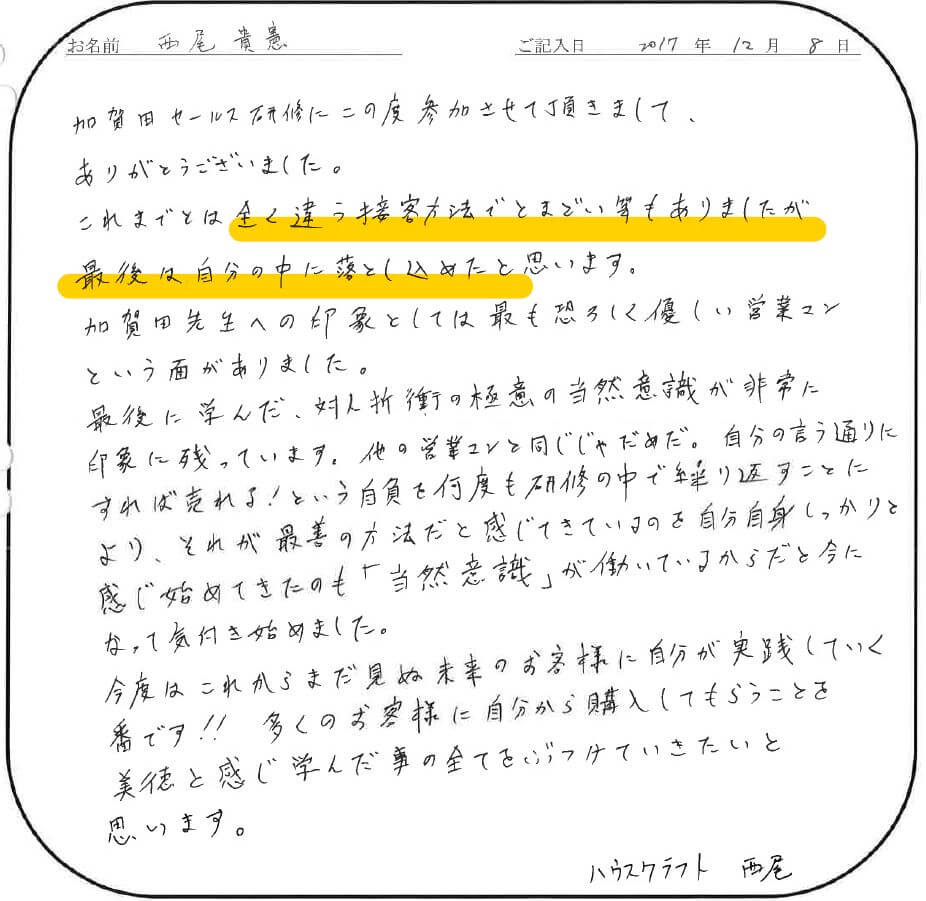 お名前 西尾貴憲 ご記入日 2017年12月8日
加賀田セールス研修にこの度参加させて頂きまして、
ありがとうございました。
これまでとは全く違う接客方法でとまどい等もありましたが
最後は自分の中に落とし込めたと思います。
加賀田先生への印象としては最も恐ろしく優しい営業コン
という面がありました。
最後に学んだ、対人折衝の極意の当然意識が非常に
印象に残っています。他の営業コンと同じじゃだめだ。自分の言う通りに
すれば売れる!という自負を何度も研修の中で繰り返すことに
より、それが最善の方法だと感じてきているのを自分自身しっかりと
感じ始めてきたのも「当然意識」が働いているからだと今に
なって気付き始めました。
今度はこれからまだ見ぬ未来のお客様に自分が実践していく
番です!! 多くのお客様に自分から購入してもらうことを
美徳と感じ学んだ事の全てをぶつけていきたいと
思います。
ハウスクラフト 西尾